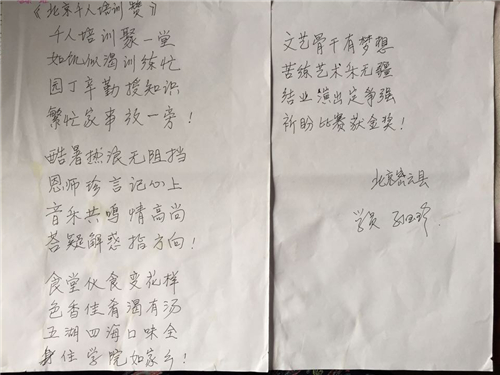 《北京千人培训赞》
千人培训聚一堂
如饥似渴训练忙
园丁辛勤授知识
繁忙家事放一旁！
酷暑热浪无阻挡
恩师珍言记心上
音乐共鸣情高尚
答疑解惑指方向！
食堂伙食变花样
色香佳肴渴有汤
五湖四海口味全
身住学院如家乡！
文艺骨干有梦想
苦练艺术乐无疆
结业演出定争强
祈盼比赛获金奖！
北京密云县
学员